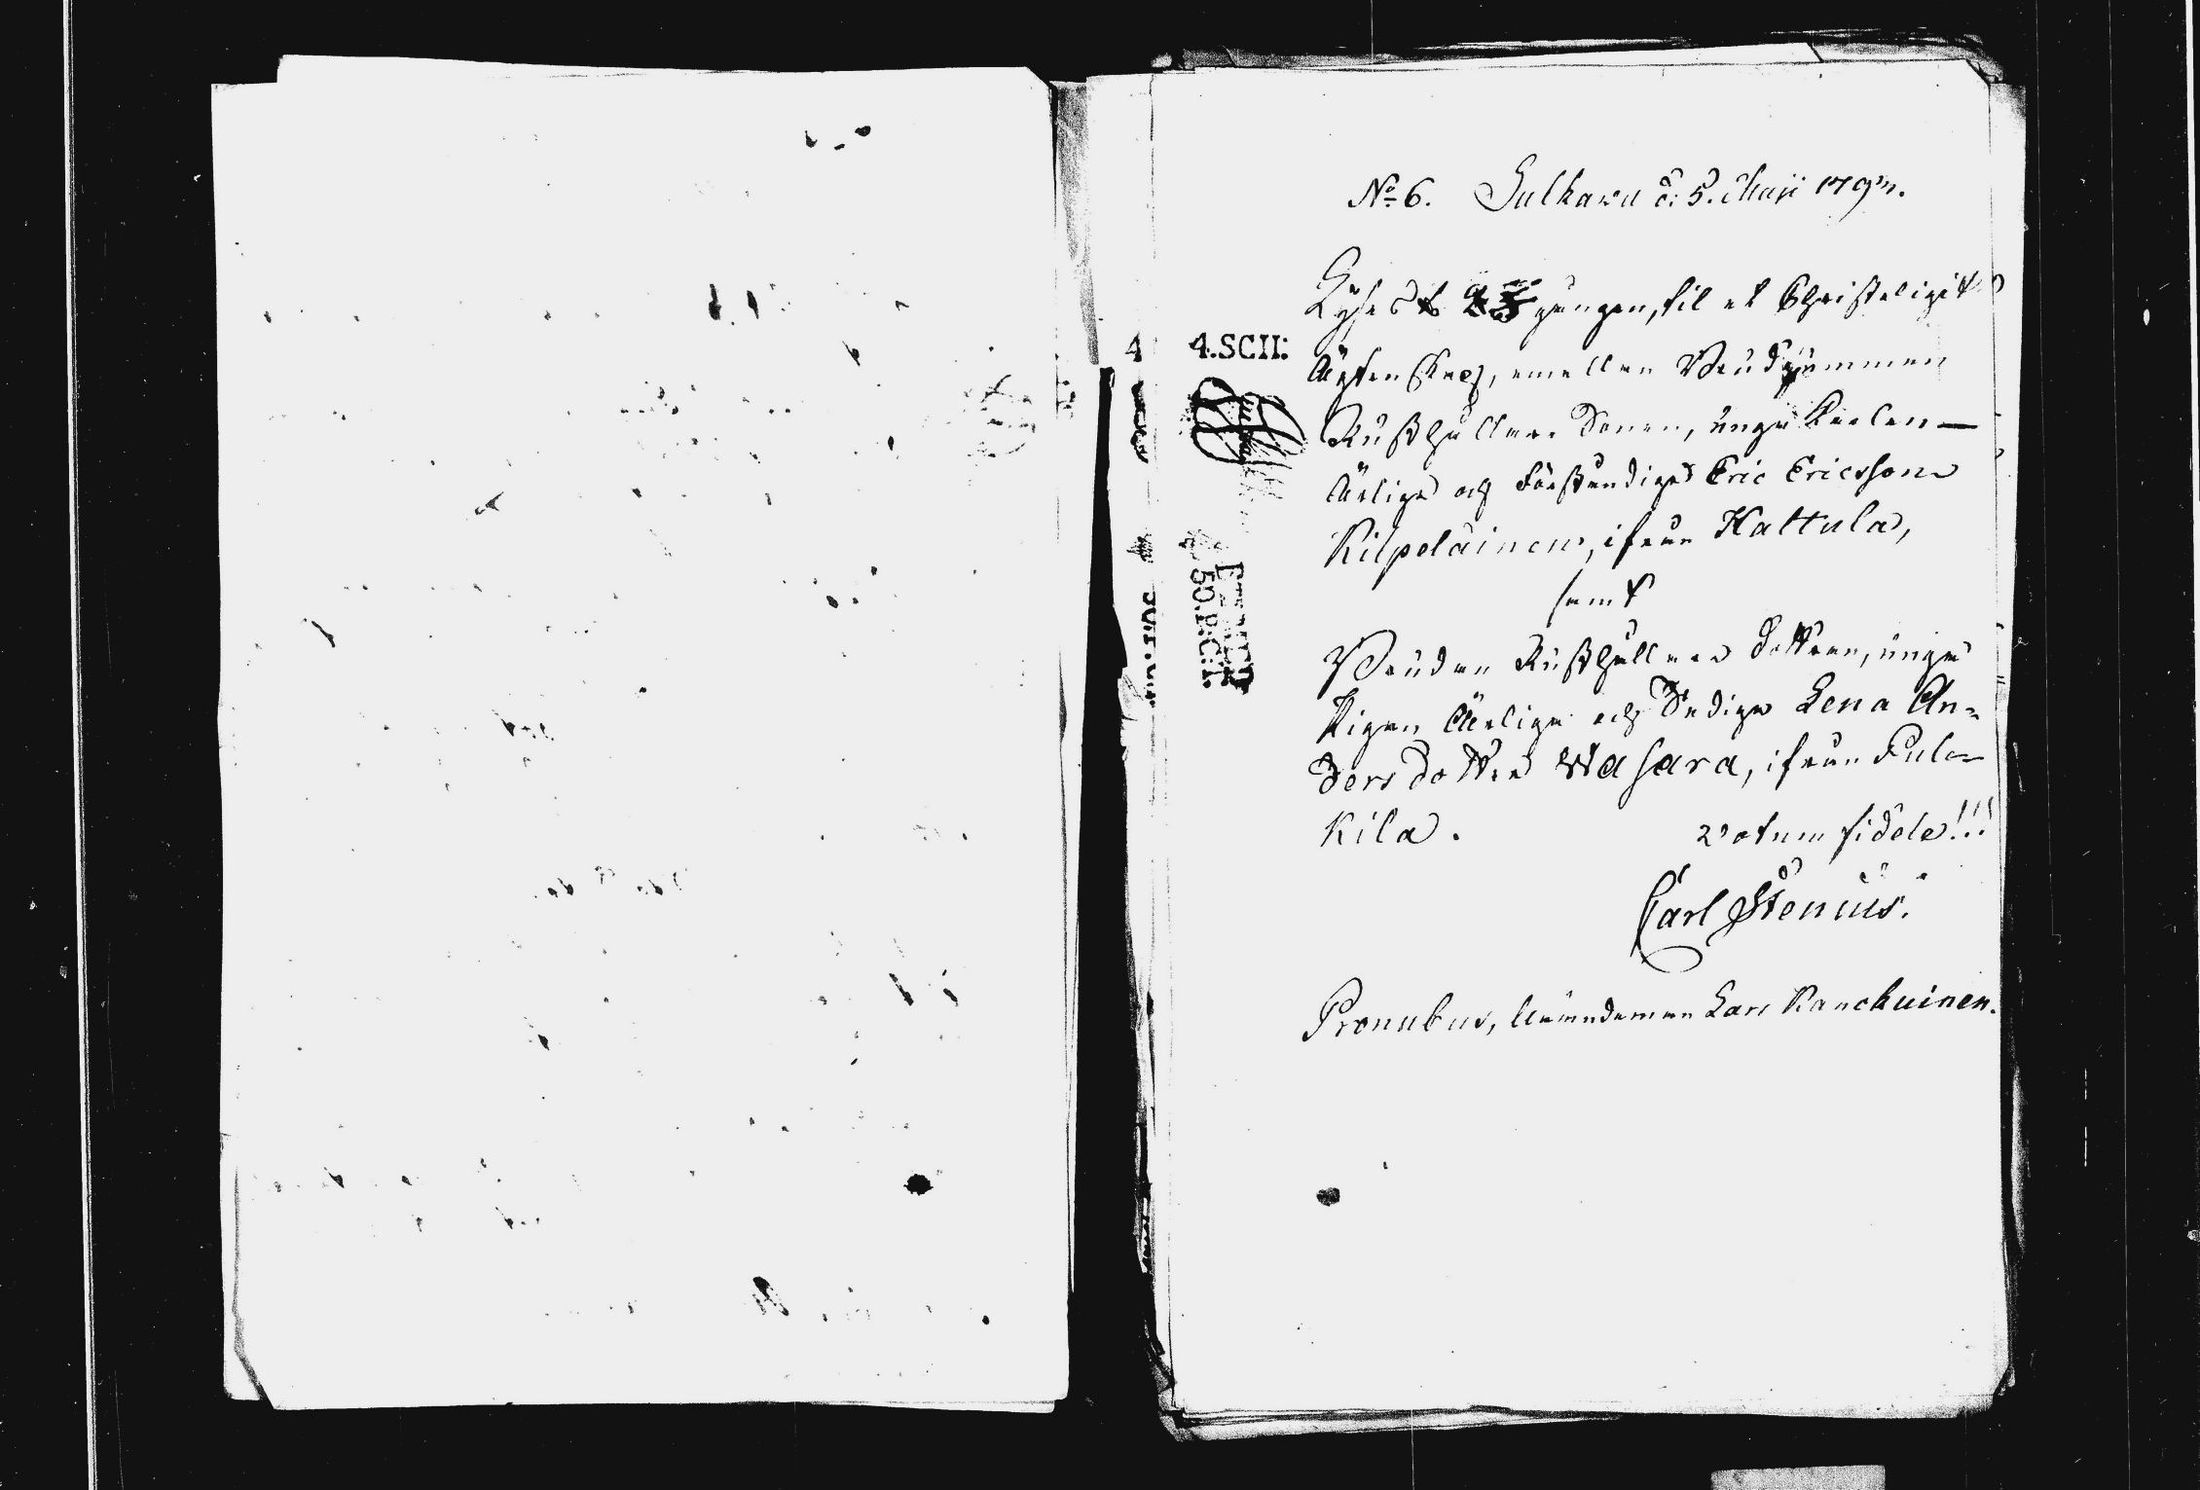 No 6. Sulkava d. 5. Maji 1792.
Lyses 3 gången, til et Christeligit
Ägtenskap, emellan Brudgummen
Rusthållare Sonen, unge Karlen —
Ärlige och Förståndige Eric Ericsson
Kilpeläinen, ifrån Kattula,
samt
Bruden Rusthållare Dottren, unga
Pigan Ärliga och Dydiga Lena An=
ders dotter Wasara, ifrån Pul=
kila. Votum fidele!!!
Carl Stenius.
Pronubus, Nämndeman Lars
4.SCH:
50.P.C.T.